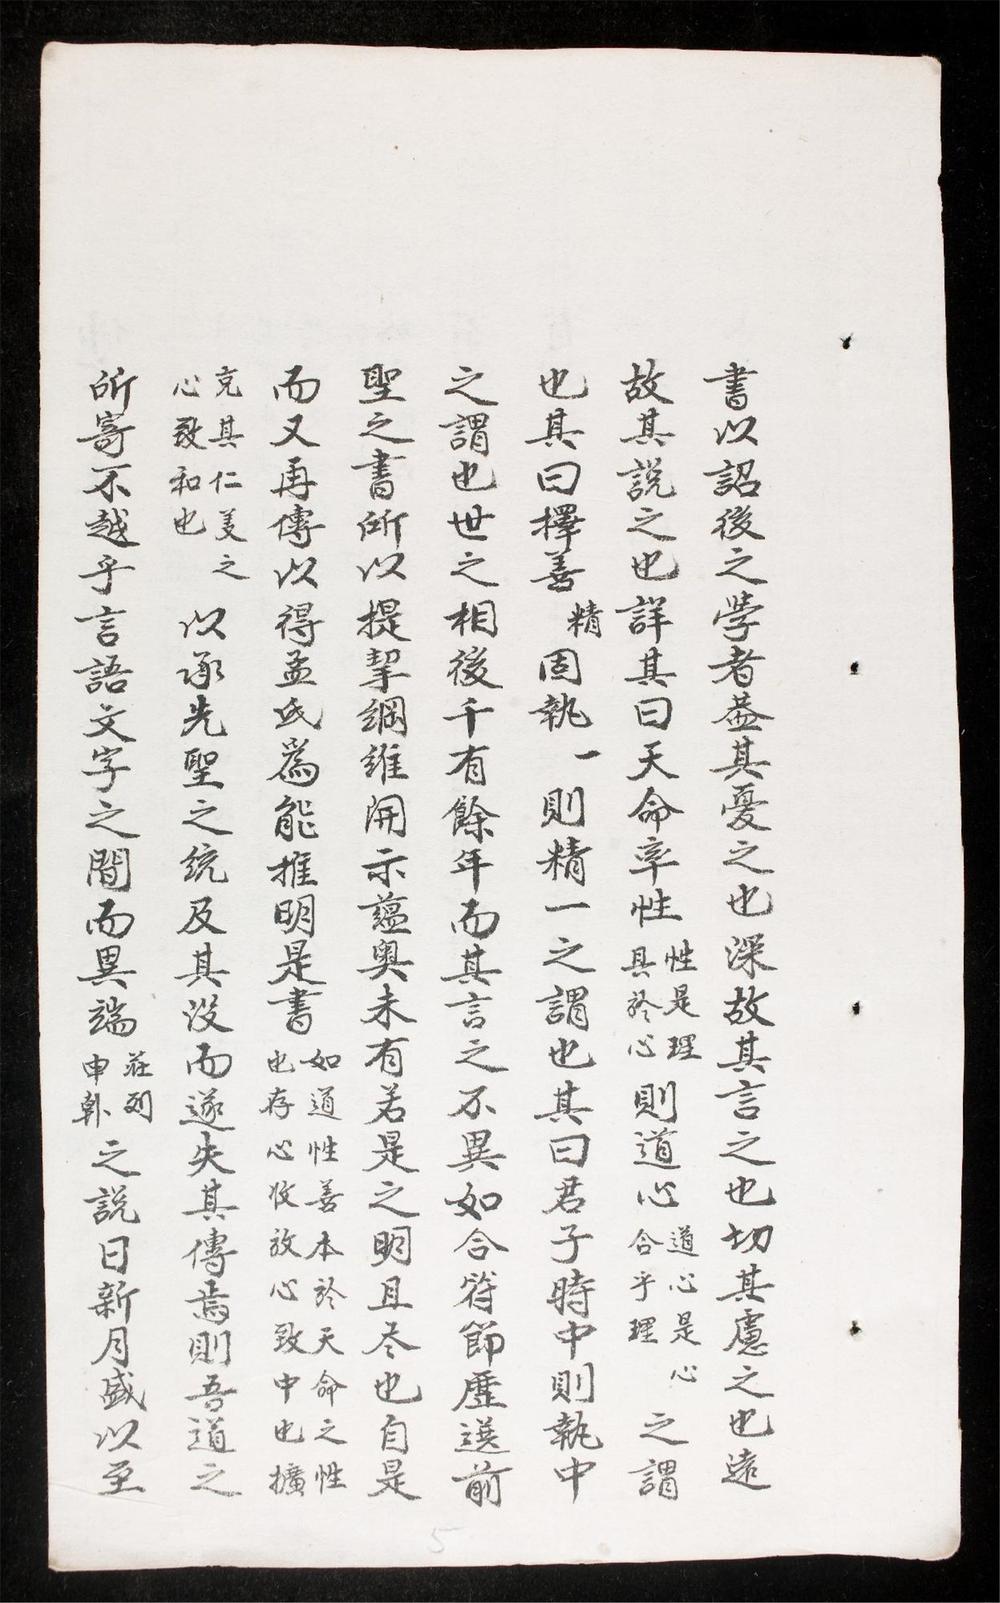 書以詔後之學者葢其憂之也深故其言之也切其慮之也遠
故其說之也詳其曰天命率性性是理具於心則道心道心是心合乎理之謂
也其曰擇善精固執一則精一之謂也其曰君子時中則執中
之謂也世之相後千有餘年而其言之不異如合符節歷選前
聖之書所以提挈綱維開示蘊奥未有若是之明且尽也自是
而又再傳以得孟氏為能推明是書如道性善本於天命之性也存心收放心致中也擴
充其仁義之心致和也以承先聖之統及其没而遂失其傳焉則吾道之
所寄不越乎言語文字之間而異端莊列申韩之說日新月盛以至
5